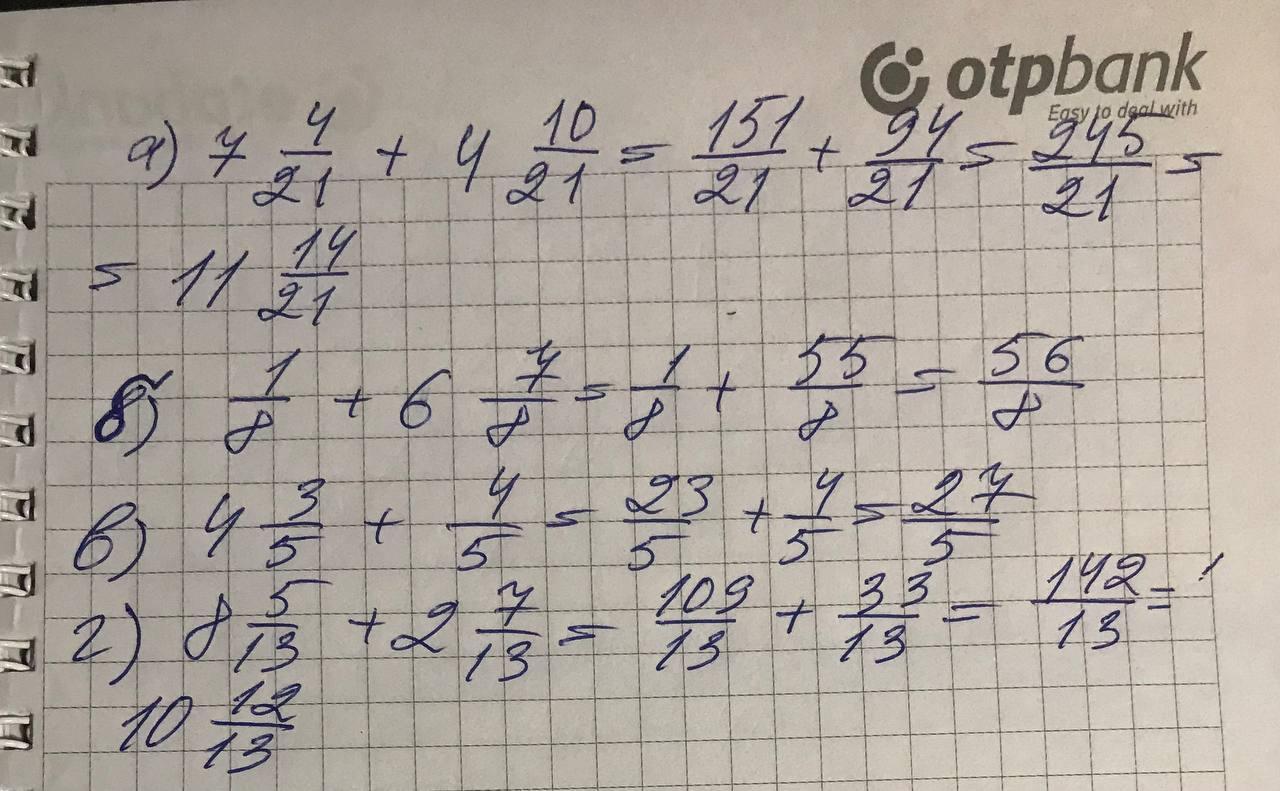 otpbank
Easy to deal with
а) 7 4/21 + 4 10/21 = 151/21 + 94/21 = 245/21 =
= 11 14/21
б) 1/8 + 6 7/8 = 1/8 + 55/8 = 56/8
в) 4 3/5 + 4/5 = 23/5 + 4/5 = 27/5
г) 8 5/13 + 2 7/13 = 109/13 + 33/13 = 142/13 =
10 12/13